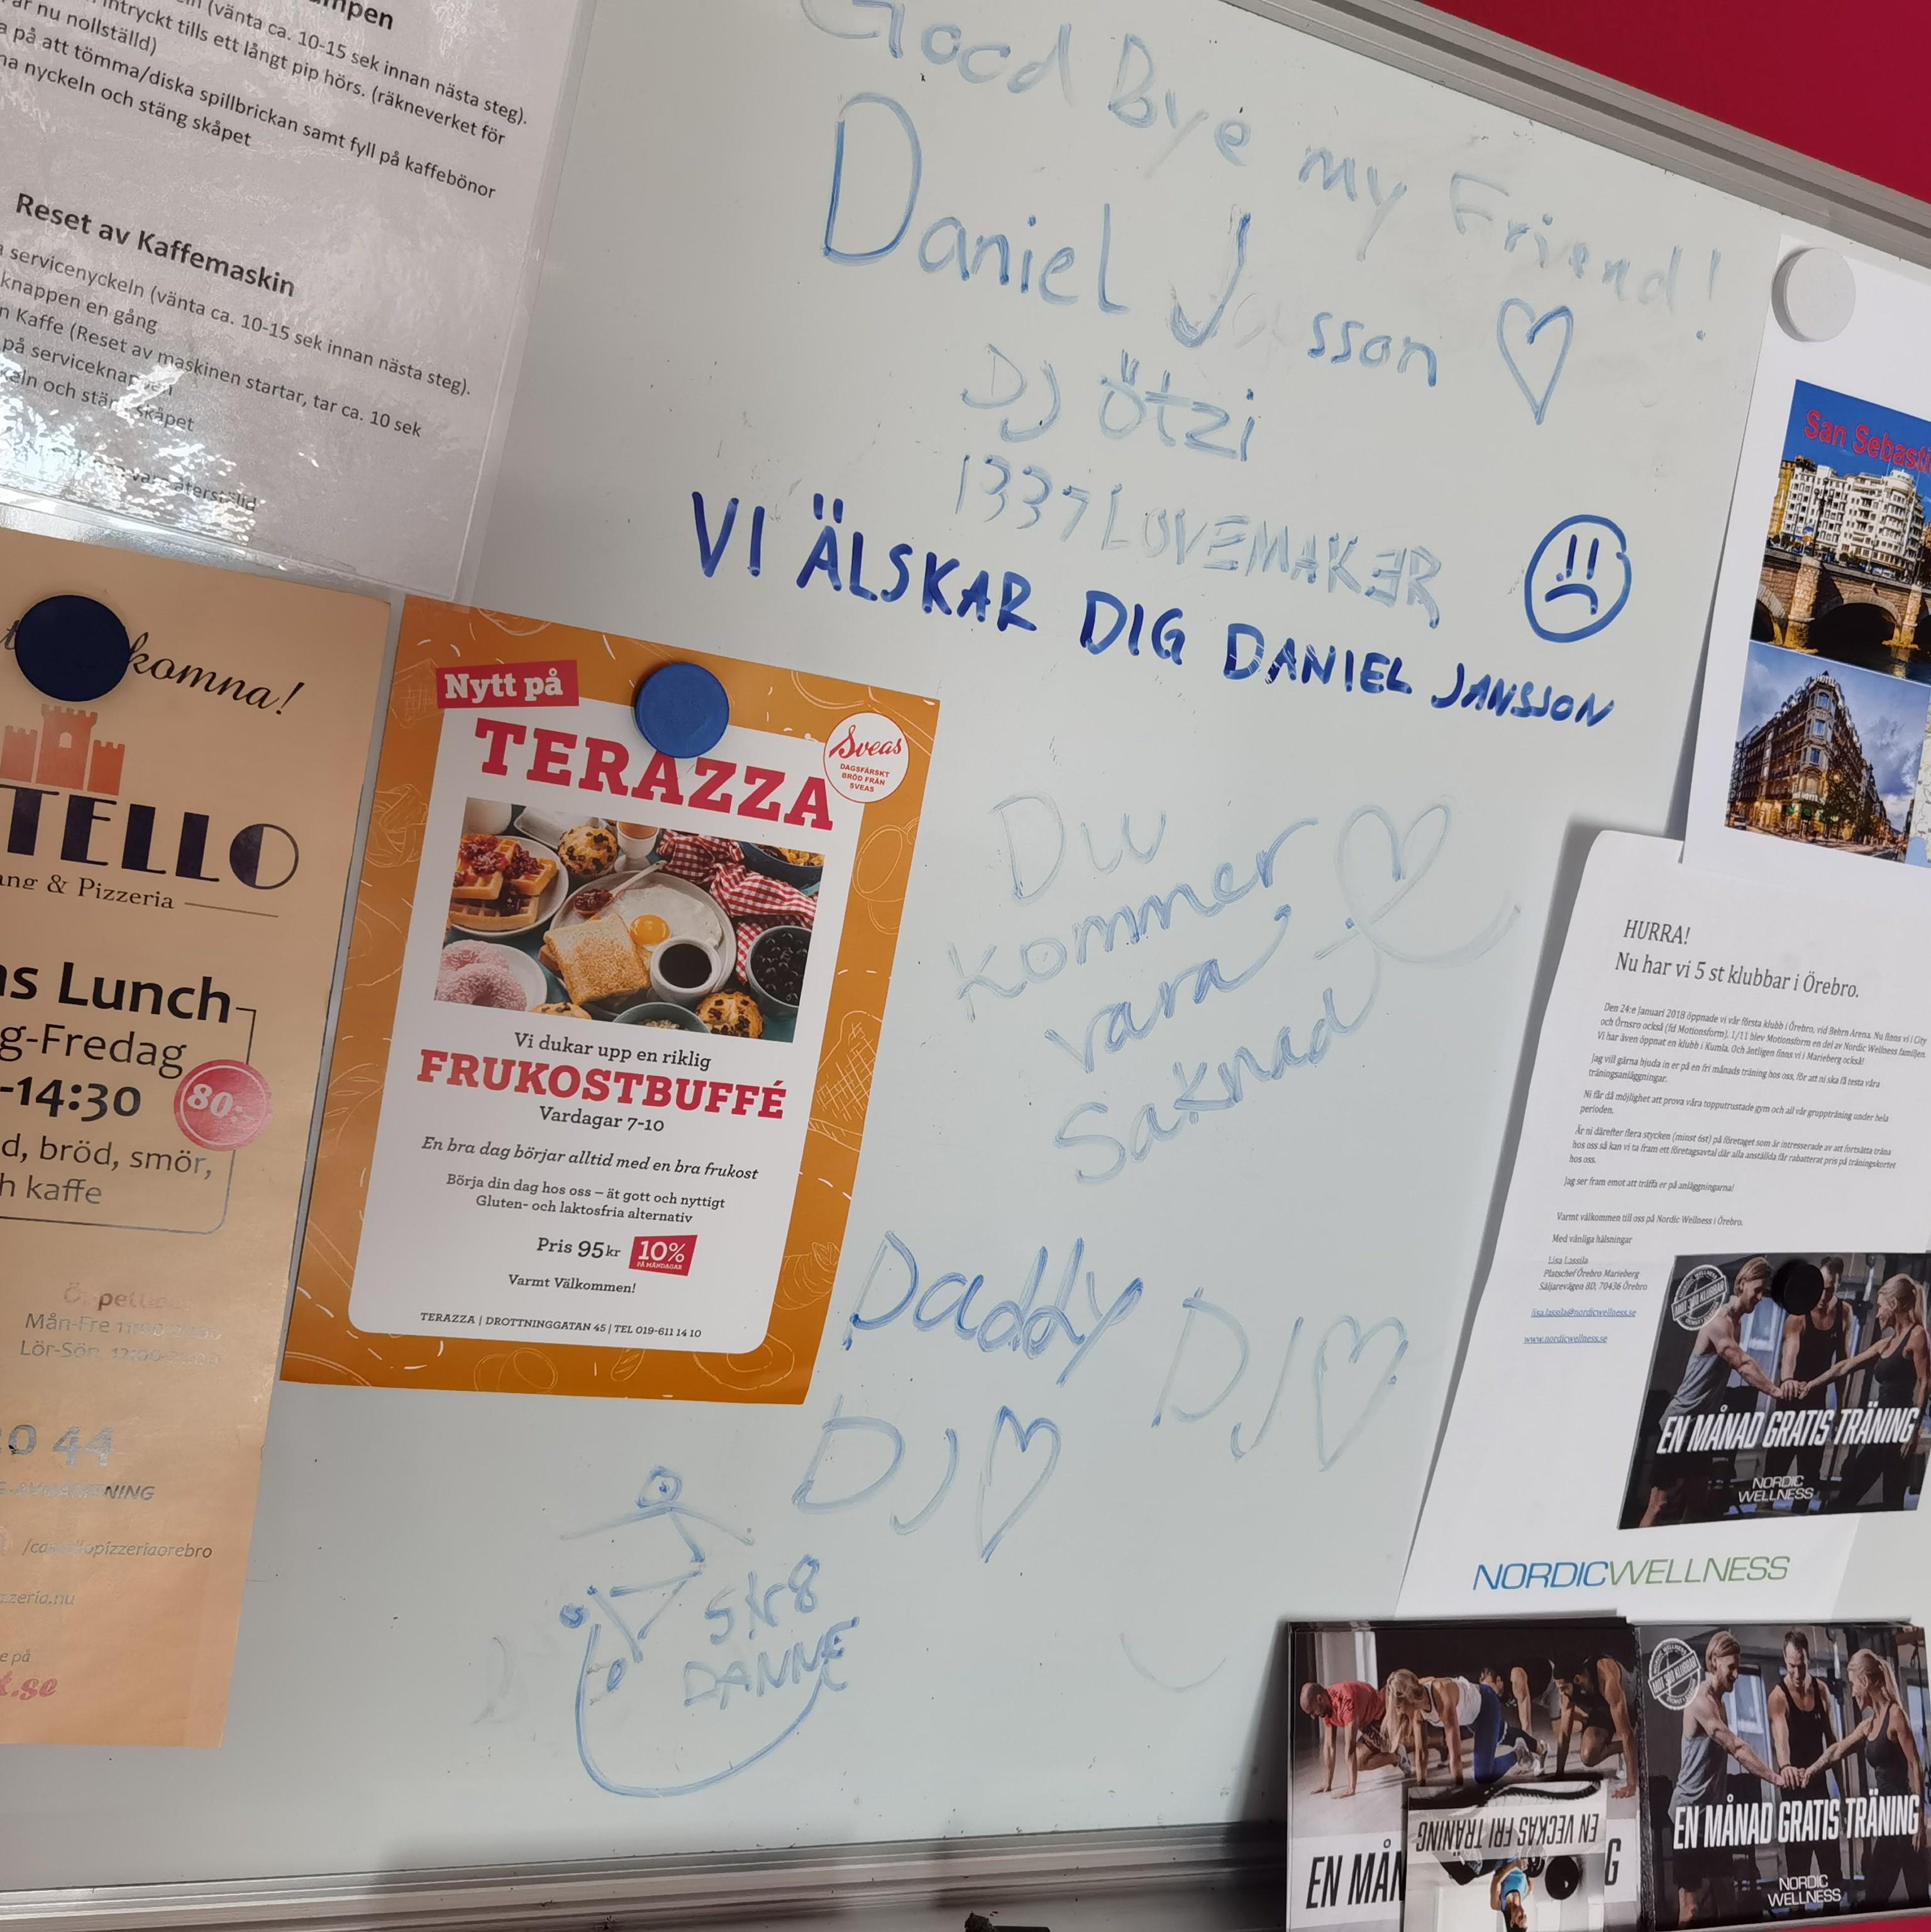 (vänta ca. 10-15 sek innan nästa steg).
intryckt tills ett långt pip hörs. (räkneverket för
är nu nollställd)
på att tömma/diska spillbrickan samt fyll på kaffebönor
nyckeln och stäng skåpet
Reset av Kaffemaskin
servicenyckeln (vänta ca. 10-15 sek innan nästa steg).
knappen en gång
Kaffe (Reset av maskinen startar, tar ca. 10 sek
på serviceknappen
och stäng skåpet
Good Bye my Friend!
Daniel Jansson
DJ Ötzi
1337 LOVEMAKER
VI ÄLSKAR DIG DANIEL JANSSON
Du
kommer
vara
saknad
Daddy
DJ
DJ
DANNE
komna!
TELLO
& Pizzeria
Lunch
g-Fredag
-14:30
80:-
bröd, smör,
kaffe
Mån-Fre
Lör-Sön
44
/castellopizzeriaorebro
Nytt på
TERAZZA
Sveas
DAGSFÄRSKT
BRÖD FRÅN
SVEAS
Vi dukar upp en riklig
FRUKOSTBUFFÉ
Vardagar 7-10
En bra dag börjar alltid med en bra frukost
Börja din dag hos oss – ät gott och nyttigt
Gluten- och laktosfria alternativ
Pris 95 kr
10%
PÅ MÅNDAGAR
Varmt Välkommen!
TERAZZA | DROTTNINGGATAN 45 | TEL 019-611 14 10
San Sebasti
HURRA!
Nu har vi 5 st klubbar i Örebro.
Den 24:e Januari 2018 öppnade vi vår första klubb i Örebro, vid Behrn Arena. Nu finns vi i City
och Örnsro också (fd Motionsform). 1/11 blev Motionsform en del av Nordic Wellness familjen.
Vi har även öppnat en klubb i Kumla. Och äntligen finns vi i Marieberg också!
Jag vill gärna bjuda in er på en fri månads träning hos oss, för att ni ska få testa våra
träningsanläggningar.
Ni får då möjlighet att prova våra topputrustade gym och all vår gruppträning under hela
perioden.
Är ni därefter flera stycken (minst 6st) på företaget som är intresserade av att fortsätta träna
hos oss så kan vi ta fram ett företagsavtal där alla anställda får rabatterat pris på träningskortet
hos oss.
Jag ser fram emot att träffa er på anläggningarna!
Varmt välkommen till oss på Nordic Wellness i Örebro.
Med vänliga hälsningar
Lisa Lassila
Platschef Örebro Marieberg
Säljarevägen 8D, 70436 Örebro
lisa.lassila@nordicwellness.se
www.nordicwellness.se
EN MÅNAD GRATIS TRÄNING
NORDIC
WELLNESS
NORDICWELLNESS
EN MÅN
G
EN VECKAS FRI TRÄNING
EN MÅNAD GRATIS TRÄNING
NORDIC
WELLNESS